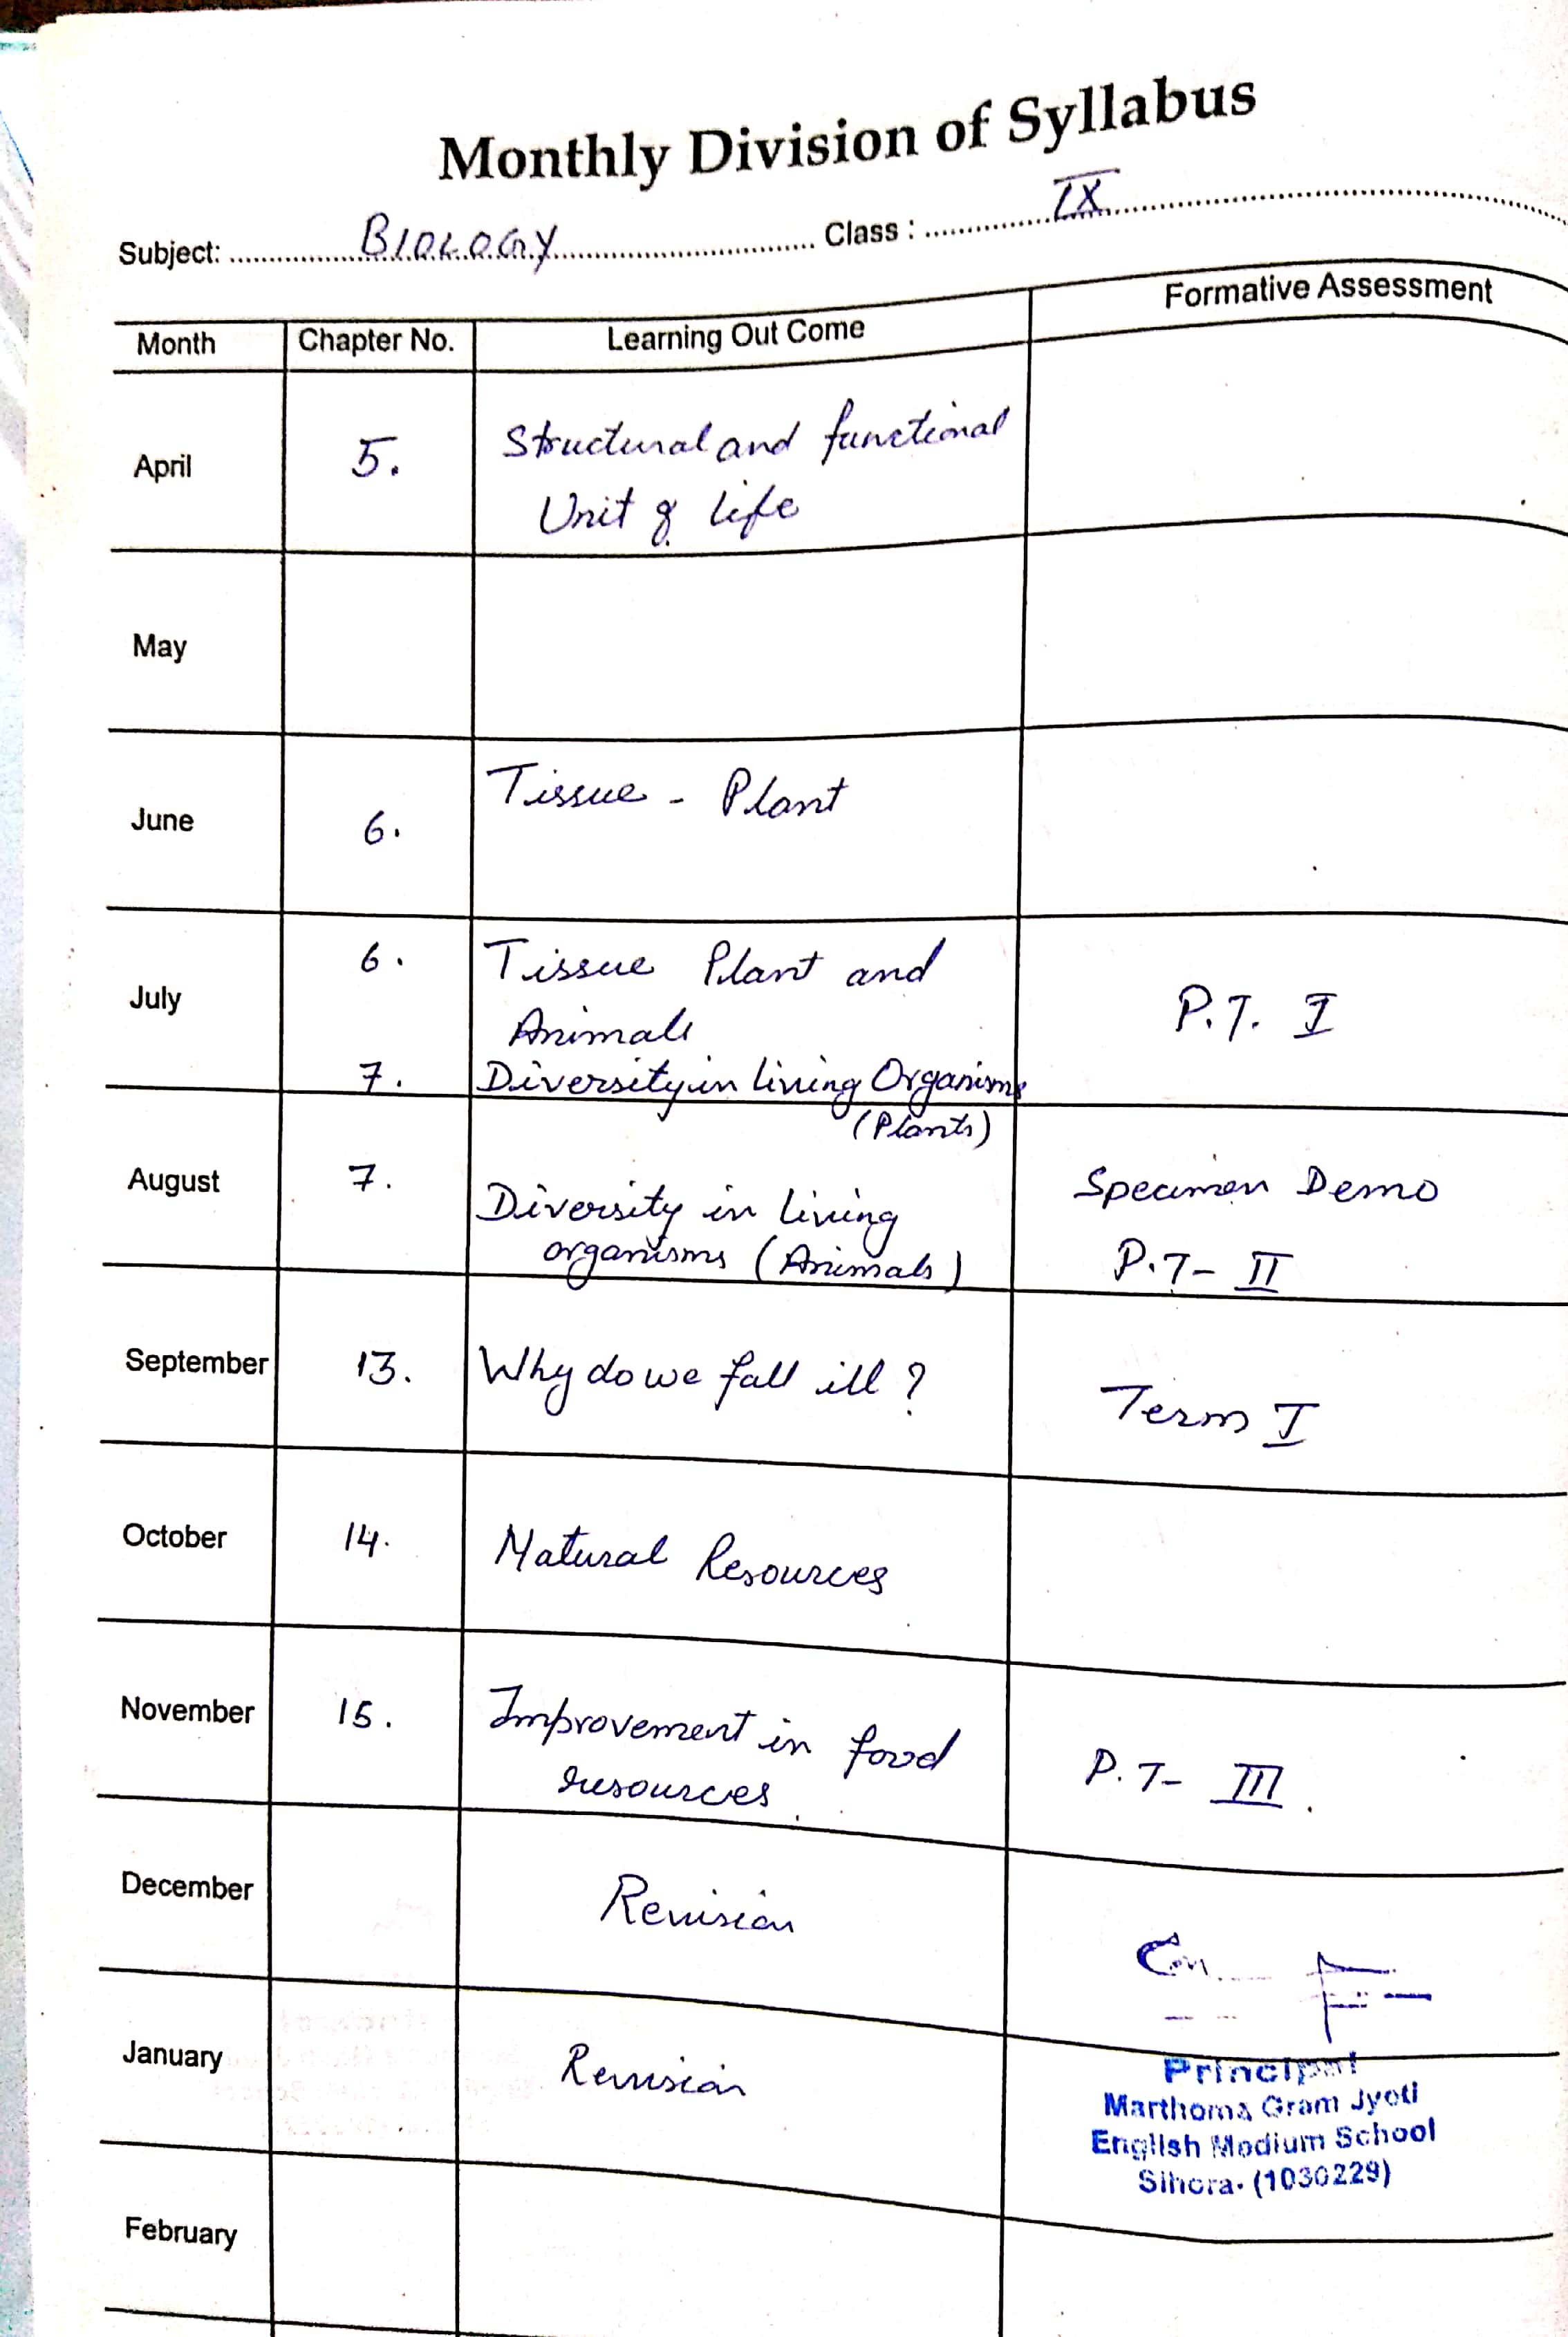 Monthly Division of Syllabus
Subject: BIOLOGY Class : IX
Month Chapter No. Learning Out Come Formative Assessment
April 5. Structural and functional
Unit of life
May
June 6. Tissue - Plant
July 6. Tissue Plant and
Animals
P.T. I
7. Diversity in living Organisms
(Plants)
August 7. Diversity in living
organisms (Animals)
Specimen Demo
P.T- II
September 13. Why do we fall ill ?
Term I
October 14. Natural Resources
November 15. Improvement in food
resources
P.T- III.
December Revision
January Revision
Principal
Marthoma Gram Jyoti
English Medium School
Sihora. (1030229)
February